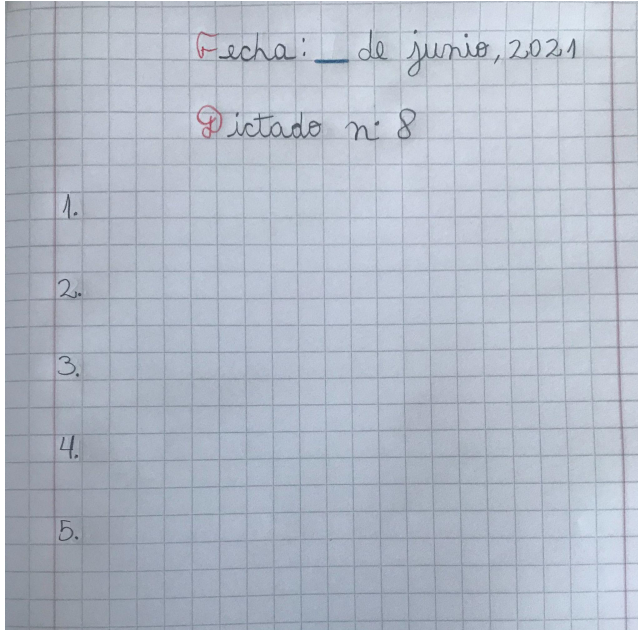 Fecha: _ de junio, 2021
Dictado n° 8
1.
2.
3.
4.
5.